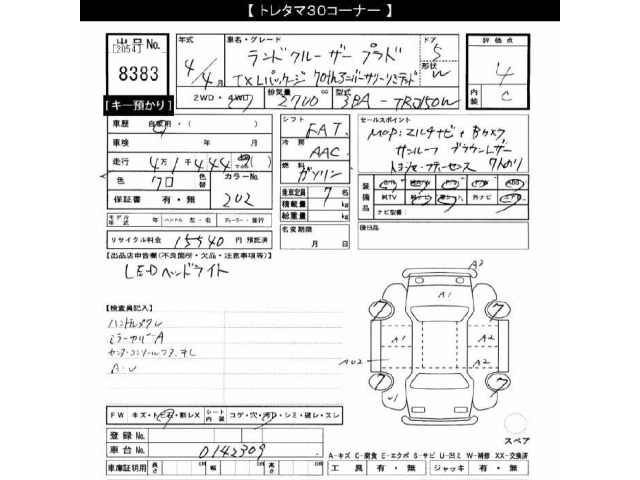 【 トレタマ30コーナー 】
出品No.
[2054]
8383
[キー預かり]
年式
4/4月
車名・グレード
ランドクルーザー プラド
TX Lパッケージ 70thアニバーサリーリミテッド
ドア 5
形状 W
2WD・4WD
排気量 2700 cc
型式 3BA-TRJ150W
評価点
4
内装 C
車歴 自家用・( )
車検 年 月
走行 4万1千444
色 クロ
色替
カラーNo. 202
保証書 有・無
モデル年式 年 ハンドル 左・右 ディーラー・並行
リサイクル料金 15540 円 預託済
シフト FAT
冷房 AAC
燃料 ガソリン
乗車定員 7 名
積載量 kg
総重量 kg
名変期限
月 日
セールスポイント
MOP:マルチナビ+Bカメラ
サンルーフ ブラウンレザー
トヨタセーフティセンス 7人のり
装備品
純TV 外ナビ
ナビ型番:
後日品
[出品店申告欄(不良箇所・欠品・注意事項等)]
LEDヘッドライト
【検査員記入】
ハンドルスレ
ミラーカバーA
センターコンソールフタ
A・U
FW キズ・トビ石・割レX シート内装 コゲ・穴・汚レ・シミ・破レ・スレ
登録No.
車台No. 0142309
車庫証明用 長さ cm 幅 cm 高さ cm
A3
A1
A1
A2
AU2
A2
U1
7
7
7
7
スペア
A-キズ C-腐食 E-エクボ S-サビ U-凹ミ W-補修 XX-交換済
工具 有・無 ジャッキ 有・無